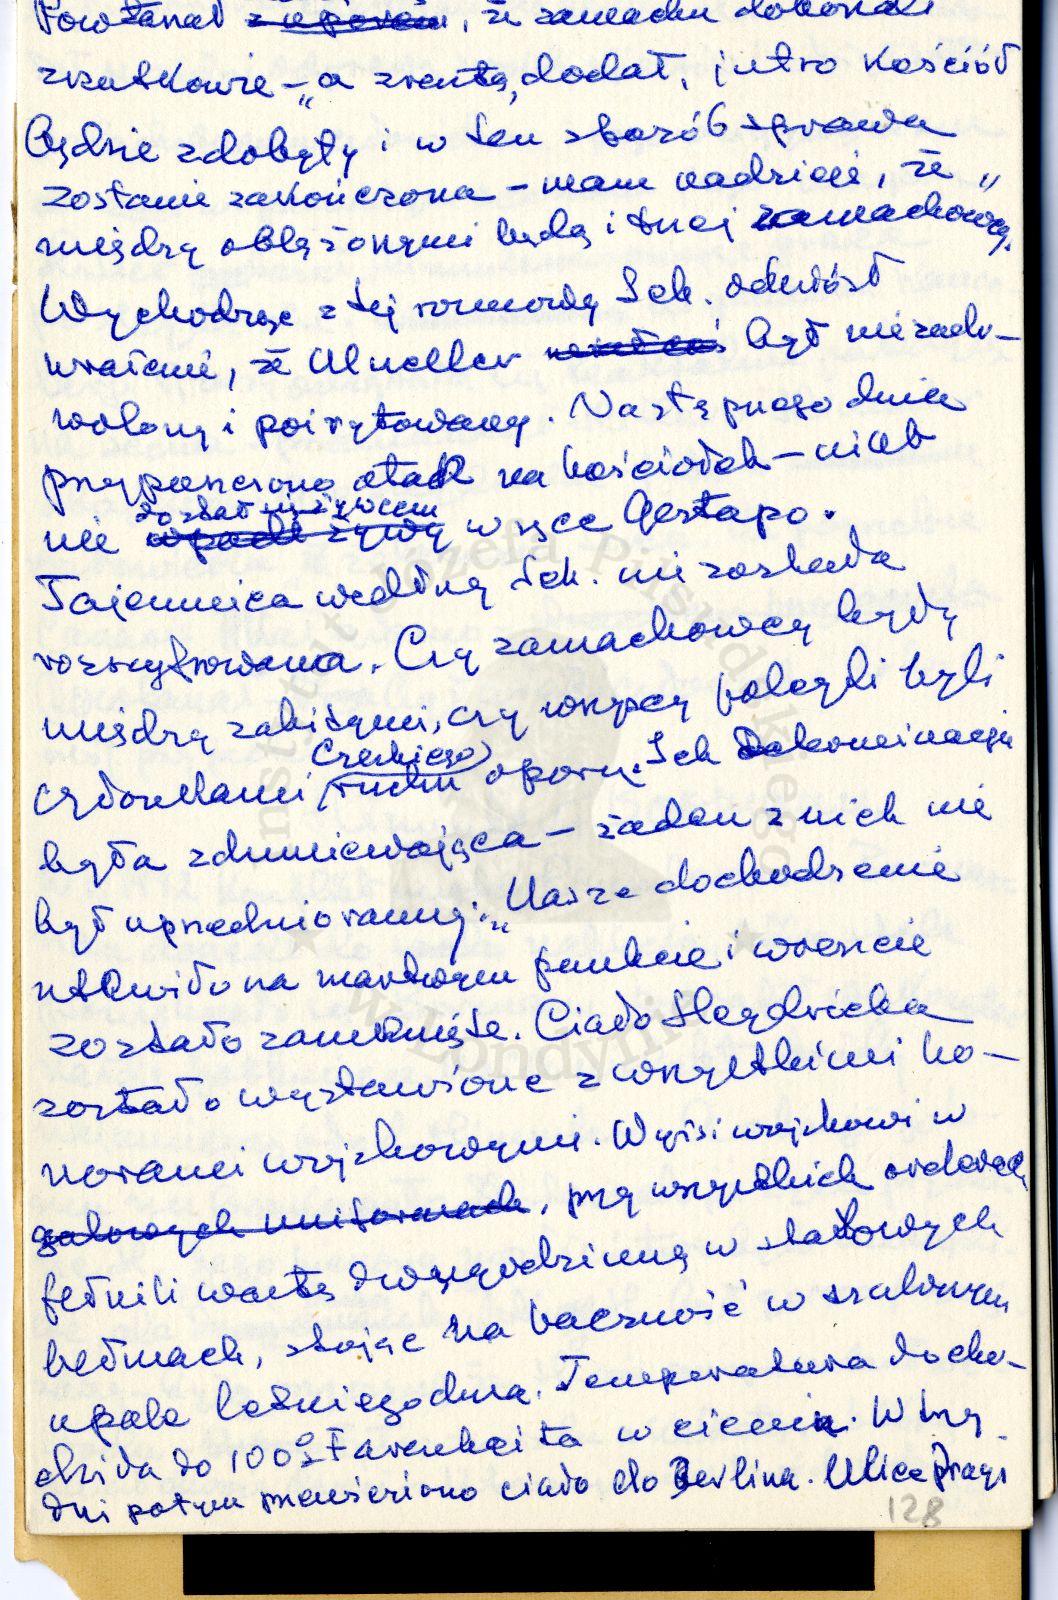 Powtarzał z uporem, że zamachu dokonali
rzutkowie – „a zresztą, dodał, jutro kościół
będzie zdobyty i w ten sposób sprawa
zostanie zakończona – mam nadzieję, że „
między oblężonymi będą i twoi zamachowcy.
Wychodząc z tej rozmowy Sch. odniósł
wrażenie, że Mueller był niezado-
wolony i poirytowany. Następnego dnia
przypuszczono atak na kościołek – nikt
nie dostał się żywcem wpadł żywy w ręce Gestapo.
Tajemnica według Sch. nie została
rozszyfrowana. Czy zamachowcy byli
między zabitymi, czy wszyscy polegli byli
członkami Czeskiego ruchu oporu. Sch
była zdumiewająca – żaden z nich nie
był uprzednioranny. „Nasze dochodzenie
utkwiło na martwym punkcie i wreszcie
zostało zamknięte. Ciało Heydricha
zostało wystawione z wszystkimi ho-
norami wojskowymi. Wyżsi wojskowi w
galowych uniformach, przy wszystkich orderach
pełnili wartę dwugodzinną w stalowych
hełmach, stojąc na baczność w szalonym
upale letniego dnia. Temperatura docho-
dziła do 100° Farenheita w cieniu. W trzy
dni potym przewieziono ciało do Berlina. Ulice Pragi
128
Instytut Józefa Piłsudskiego
w Londynie